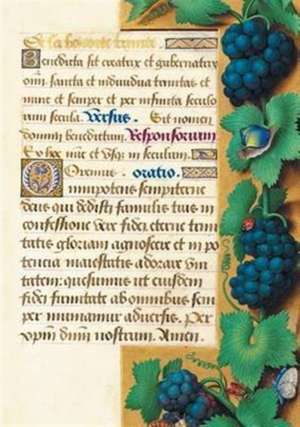 De la benoiste trinite.
Benedicta sit creatrix et gubernatrix
om̄i sancta et individua trinitas et
nunc et semper et per infinita seculo
rum secula. Versus. Sit nomen
domini benedictum. Responsorium
Ex hoc nūc et usqz in seculum.
Oremus. oratio.
Omnipotens sempiterne
deus qui dedisti famulis tuis in
confessione vere fidei eterne trini
tatis gloriam agnoscere et in po
tencia maiestatis adorare vni
tatem: quesumus ut eiusdem
fidei firmitate ab omnibus sem
per muniamur adversis. Per
xp̄m dn̄m nostrum. Amen.